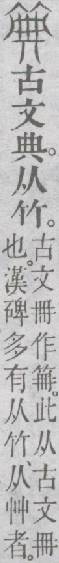 𥮏古文典。从竹。
古文冊作笧。此从古文冊
也。漢碑多有从竹从艸者。